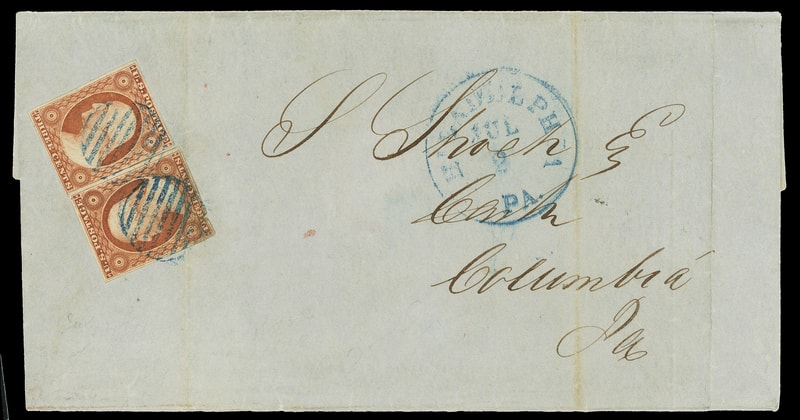 U.S. POSTAGE
THREE CENTS
U.S. POSTAGE
PHILADELPHIA
JUL
PA.
S Shoch Esq
Cash
Columbia
Pa